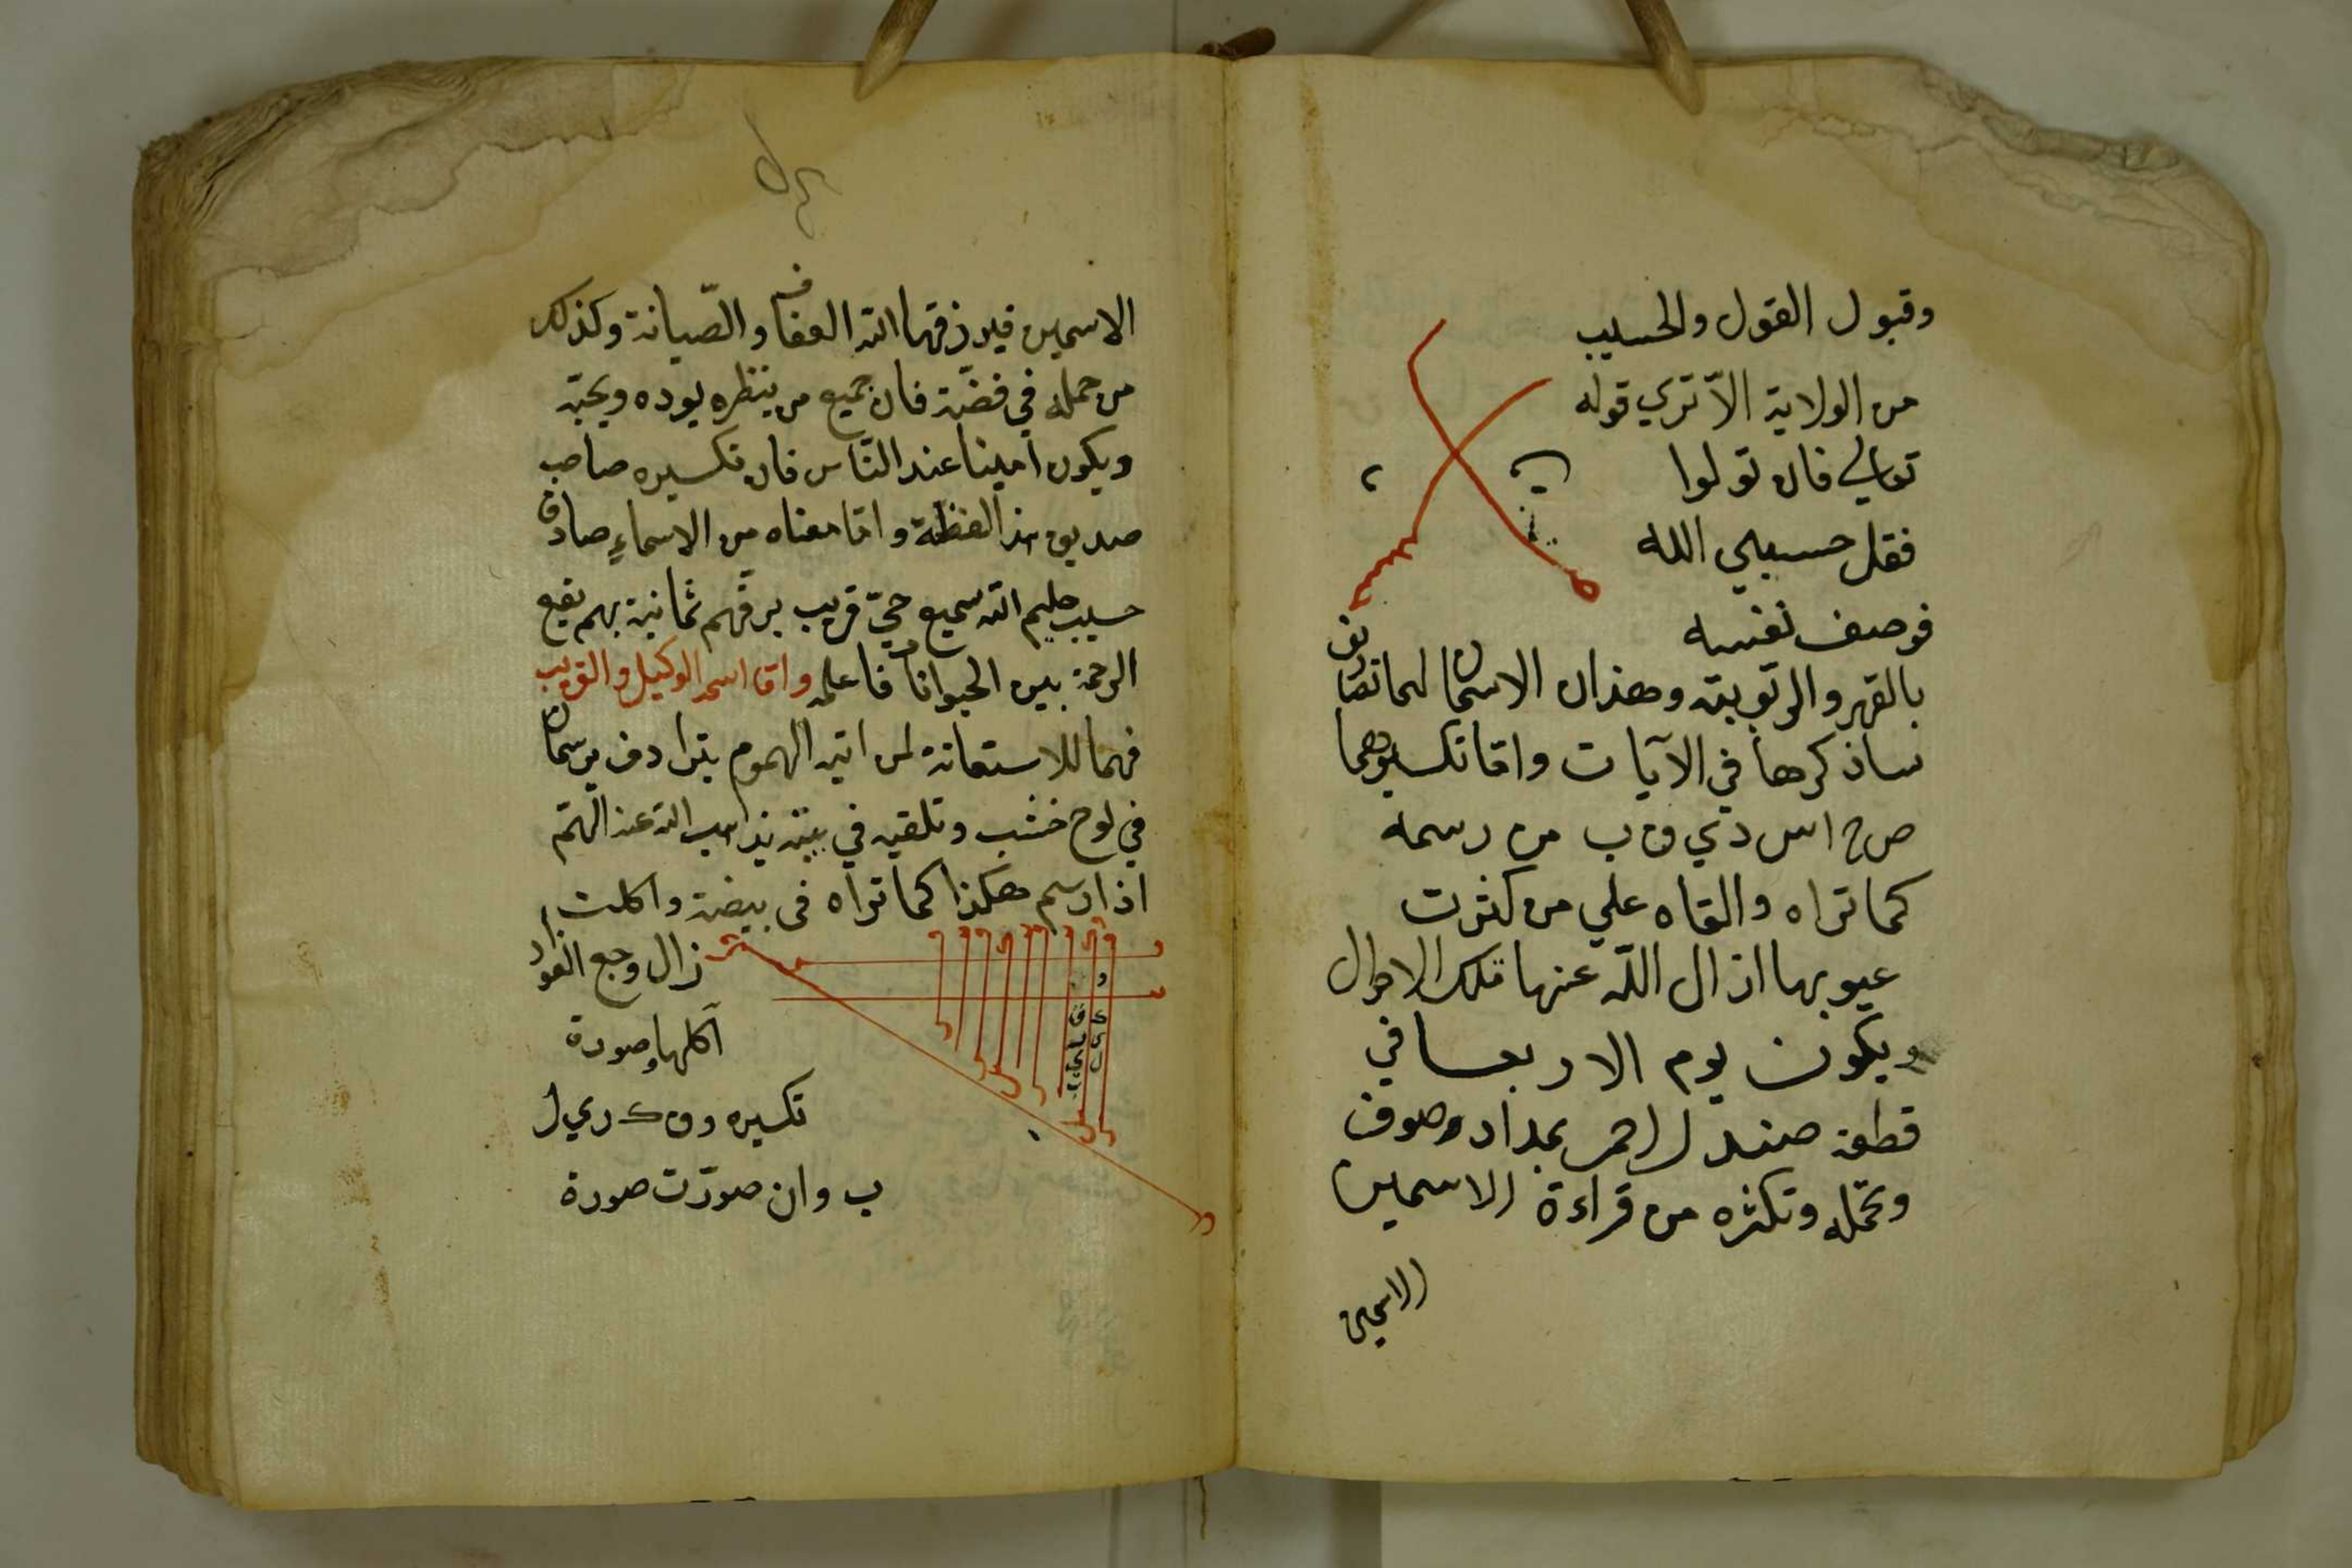 وقبول القول والحسيب
من الولاية الا تري قوله
تعالي فان تولوا
فقل حسبي الله
فوصف نفسه
بالقهر والربوبية وهذان الاسمان لهما تصانيف
ساذكرها في الآيات واما تكسيرهما
ص ح ا س د ي ق ب من رسمه
كما تراه والقاه علي من كثرت
عيوبها ازال الله عنها تلك الاحوال
ويكون يوم الاربعا في
قطعة صندل احمر بمداد وصوف
وتحمله وتكثره من قراءة الاسمين
الاسمين
الاسمين فيرزقهما الله العفاف والصّيانة وكذلك
من حمله في فضّة فان جميع من ينظره يوده ويحبّه
ويكون امينا عند النّاس فان تكسيره صاحب
صديق هذا لفظه واما معناه من الاسماء صادق
حسيب حليم الله سميع حيّ قريب يرقهم ثمانية بهم يقع
الرحمة بين الحيوانات فاعلمه واما اسمه الوكيل والقريب
فهما للاستعانة لمن اتته الهموم بترادف يرسمان
في لوح خشب وتلقيه في بيته يذهب الله عنه الهمّ
اذا رسم هكذا كما تراه في بيضة واكلت
زال وجع الفواد
اكلها وصورة
تكسيره و ق ك ر ي ل
ب وان صوّرت صورة